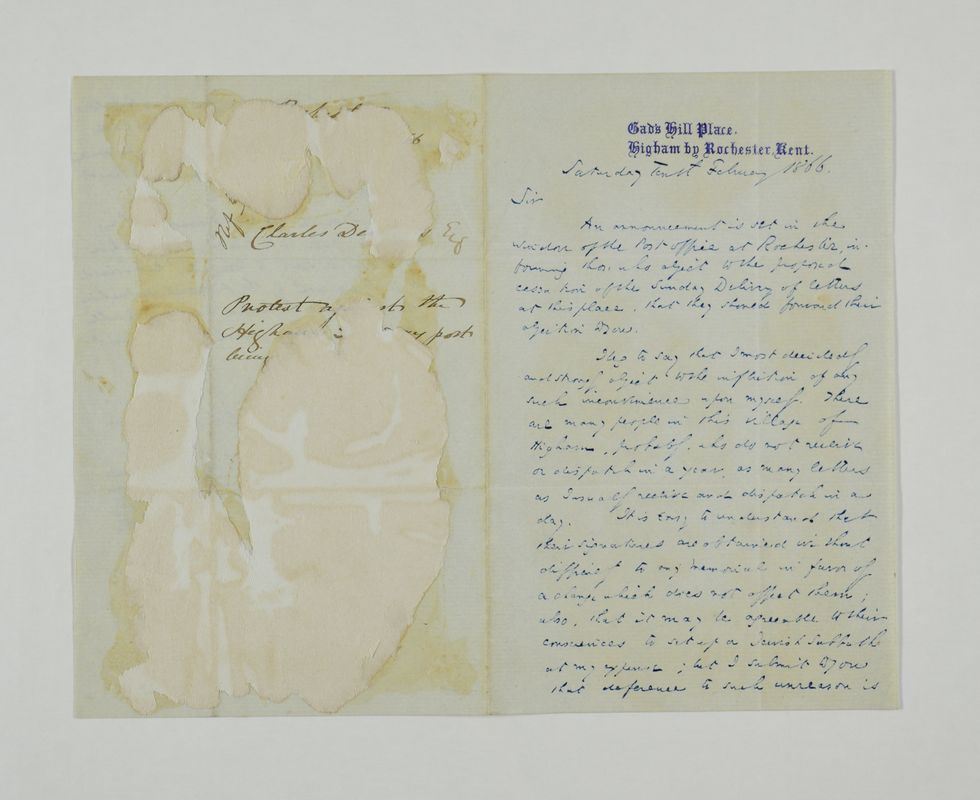 Charles
Esq
Protest the
post
Gad's Hill Place.
Higham by Rochester, Kent.
Saturday tenth February 1866.
Sir
An announcement is set in the
window of the Post office at Rochester, in-
forming those who object to the proposed
cessation of the Sunday Delivery of letters
at this place, that they should forward their
objection to you.
I beg to say that I most decidedly
and strongly object to the infliction of any
such inconvenience upon myself. There
are many people in this village of
Higham, probably, who do not receive
or dispatch in a year, as many letters
as I usually receive and dispatch in a
day. It is easy to understand that
their signatures are obtained without
difficulty to any memorial in favor of
a change which does not affect them;
also, that it may be agreeable to their
consciences to set up a Jewish Sabbath
at my expense; but I submit to you
that deference to such unreason is